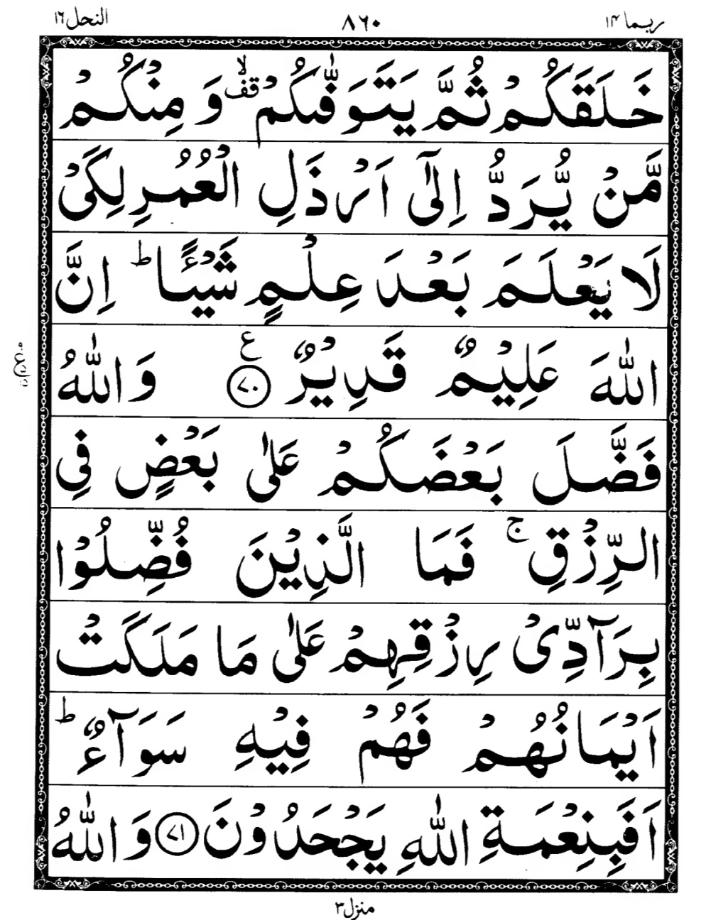 ربما ١٤ ٨٦٠ النحل ١٦
خَلَقَكُمْ ثُمَّ يَتَوَفّٰىكُمْ ۙقف وَ مِنْكُمْ
مَّنْ يُّرَدُّ اِلٰۤى اَرْذَلِ الْعُمُرِ لِكَیْ
لَا يَعْلَمَ بَعْدَ عِلْمٍ شَيْـًٔا ؕ اِنَّ
اللّٰهَ عَلِيْمٌ قَدِيْرٌ ﴿٧٠﴾ ع وَ اللّٰهُ
فَضَّلَ بَعْضَكُمْ عَلٰى بَعْضٍ فِی
الرِّزْقِ ۚ فَمَا الَّذِيْنَ فُضِّلُوْا
بِرَآدِّیْ رِزْقِهِمْ عَلٰى مَا مَلَكَتْ
اَيْمَانُهُمْ فَهُمْ فِيْهِ سَوَآءٌ ؕ
اَفَبِنِعْمَةِ اللّٰهِ يَجْحَدُوْنَ ﴿٧١﴾ وَ اللّٰهُ
منزل ٣